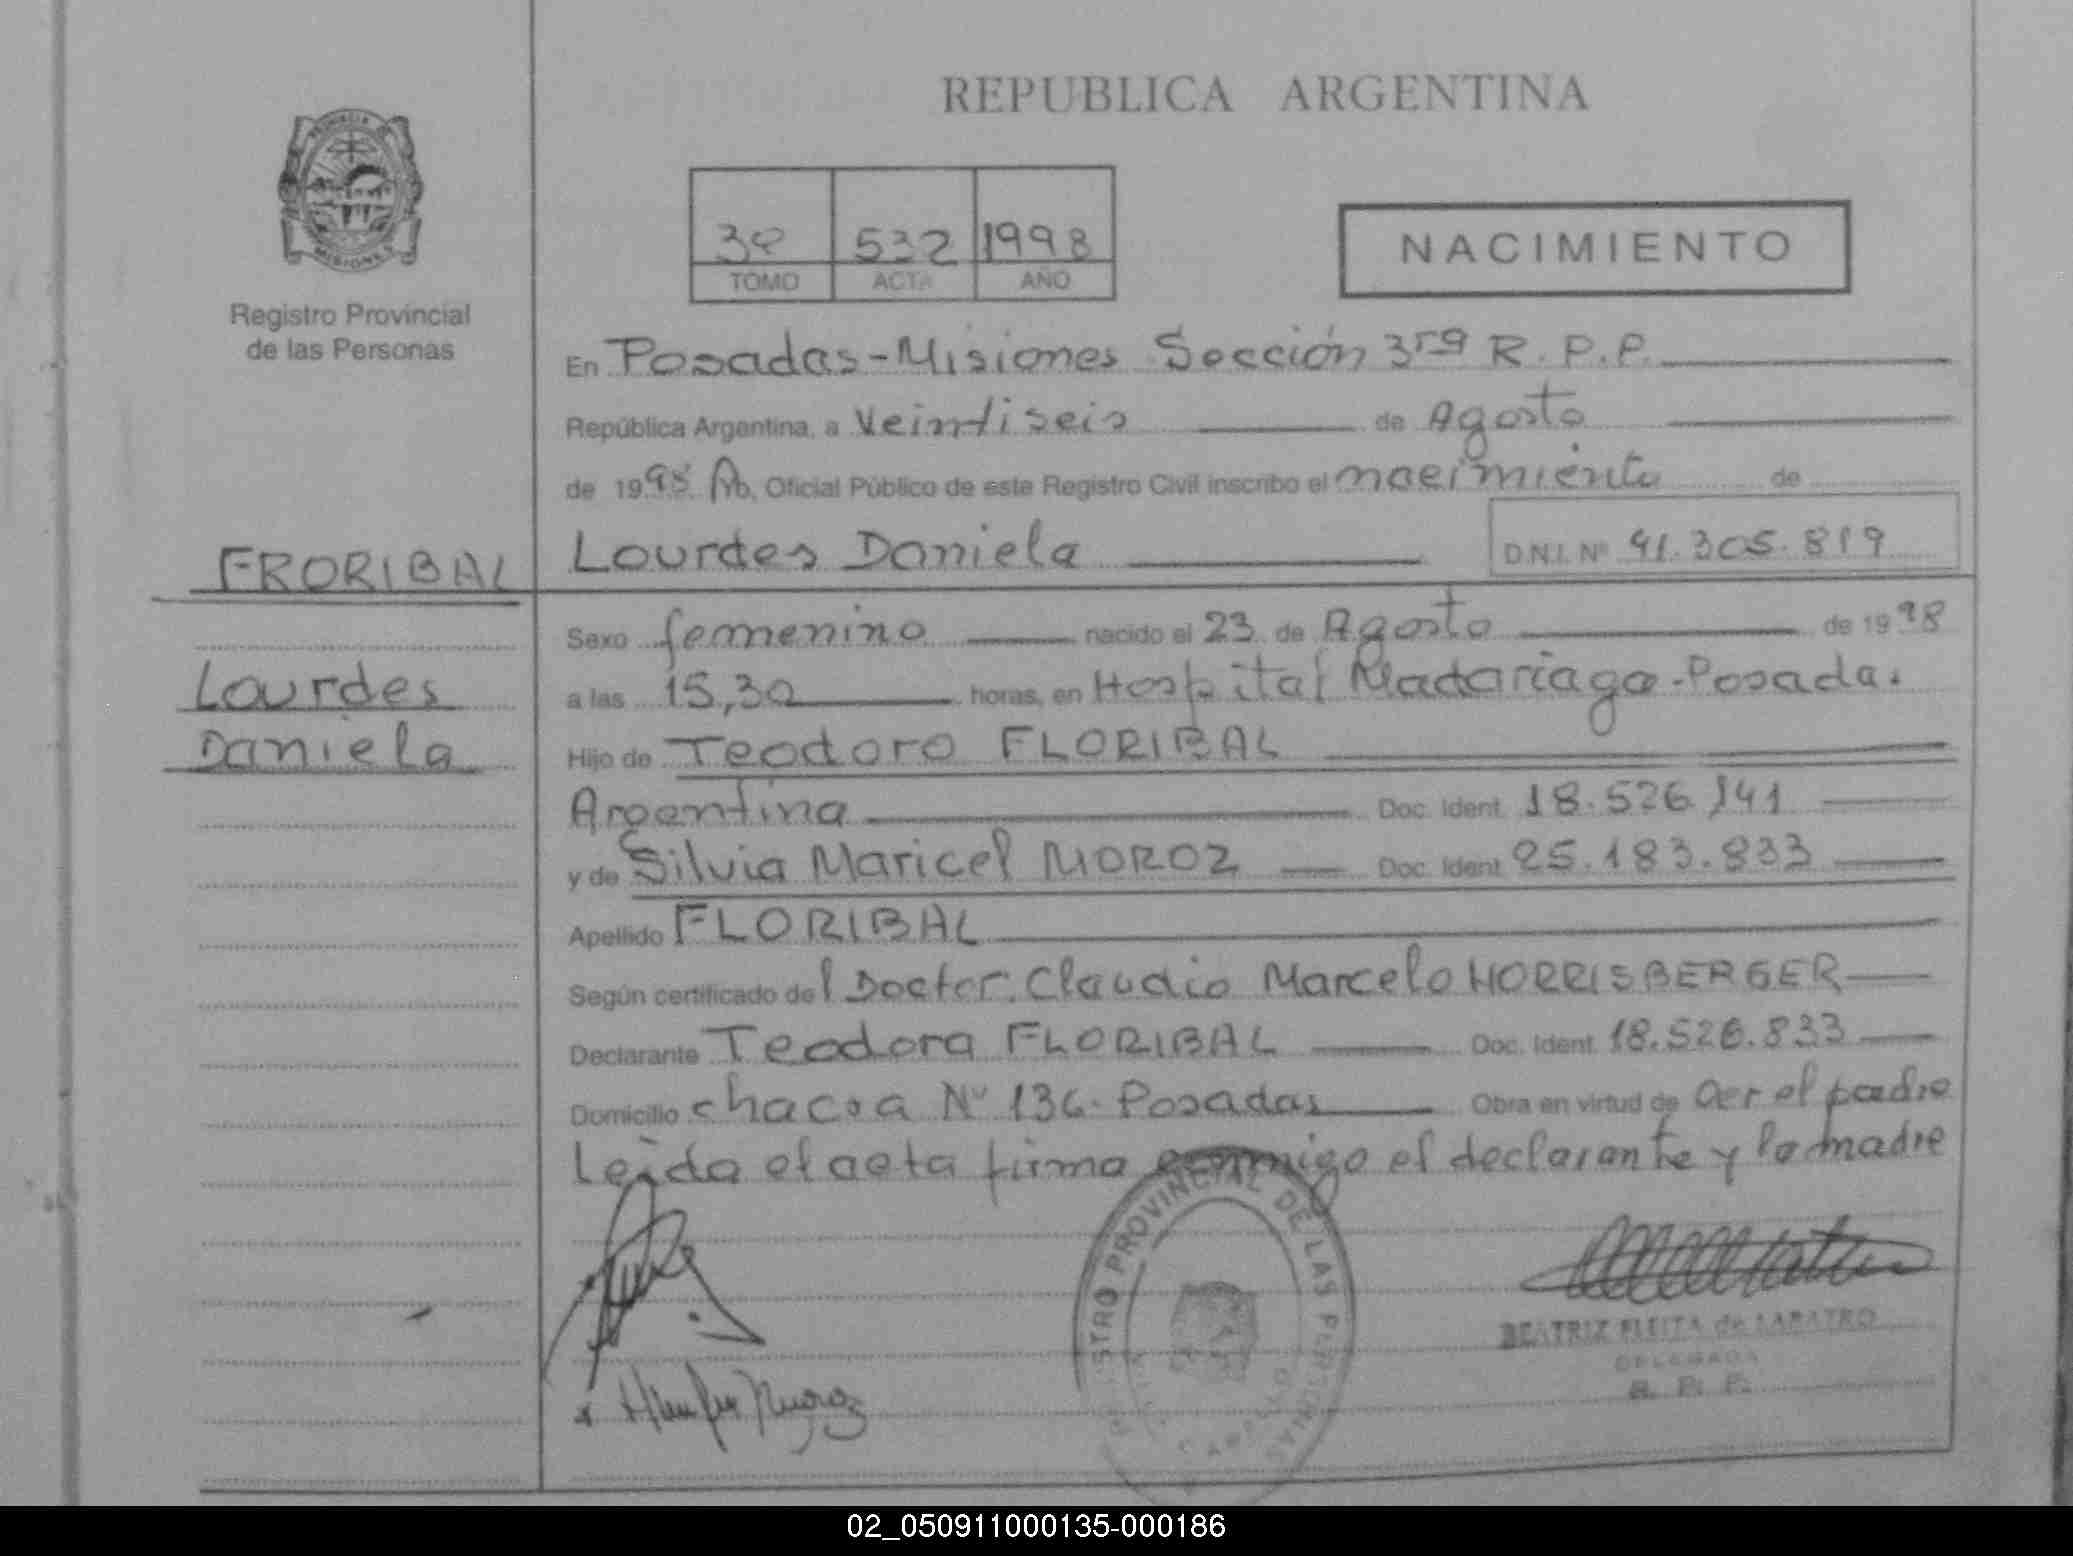 REPUBLICA ARGENTINA
PROVINCIA DE
MISIONES
Registro Provincial
de las Personas
3º 532 1998
TOMO ACTA AÑO
NACIMIENTO
En Posadas-Misiones Sección 3ra R.P.P.
República Argentina, a Veintiseis de Agosto
de 1998 Yo, Oficial Público de este Registro Civil inscribo el nacimiento de
Lourdes Daniela
D.N.I. Nº 41.305.819
FRORIBAL
Lourdes
Daniela
Sexo femenino nacido el 23 de Agosto de 1998
a las 15,30 horas, en Hospital Madariaga-Posadas
Hijo de Teodoro FLORIBAL
Argentina Doc. Ident. 18.526.141
y de Silvia Maricel MOROZ Doc. Ident. 25.183.833
Apellido FLORIBAL
Según certificado del Doctor. Claudio Marcelo HORRISBERGER
Declarante Teodora FLORIBAL Doc. Ident. 18.526.833
Domicilio chacra Nº 136-Posadas Obra en virtud de ser el padre
Leida el acta firma conmigo el declarante y la madre
REGISTRO PROVINCIAL DE LAS PERSONAS
BEATRIZ FLEITA de
DELEGADA
R. P. P.
02_050911000135-000186